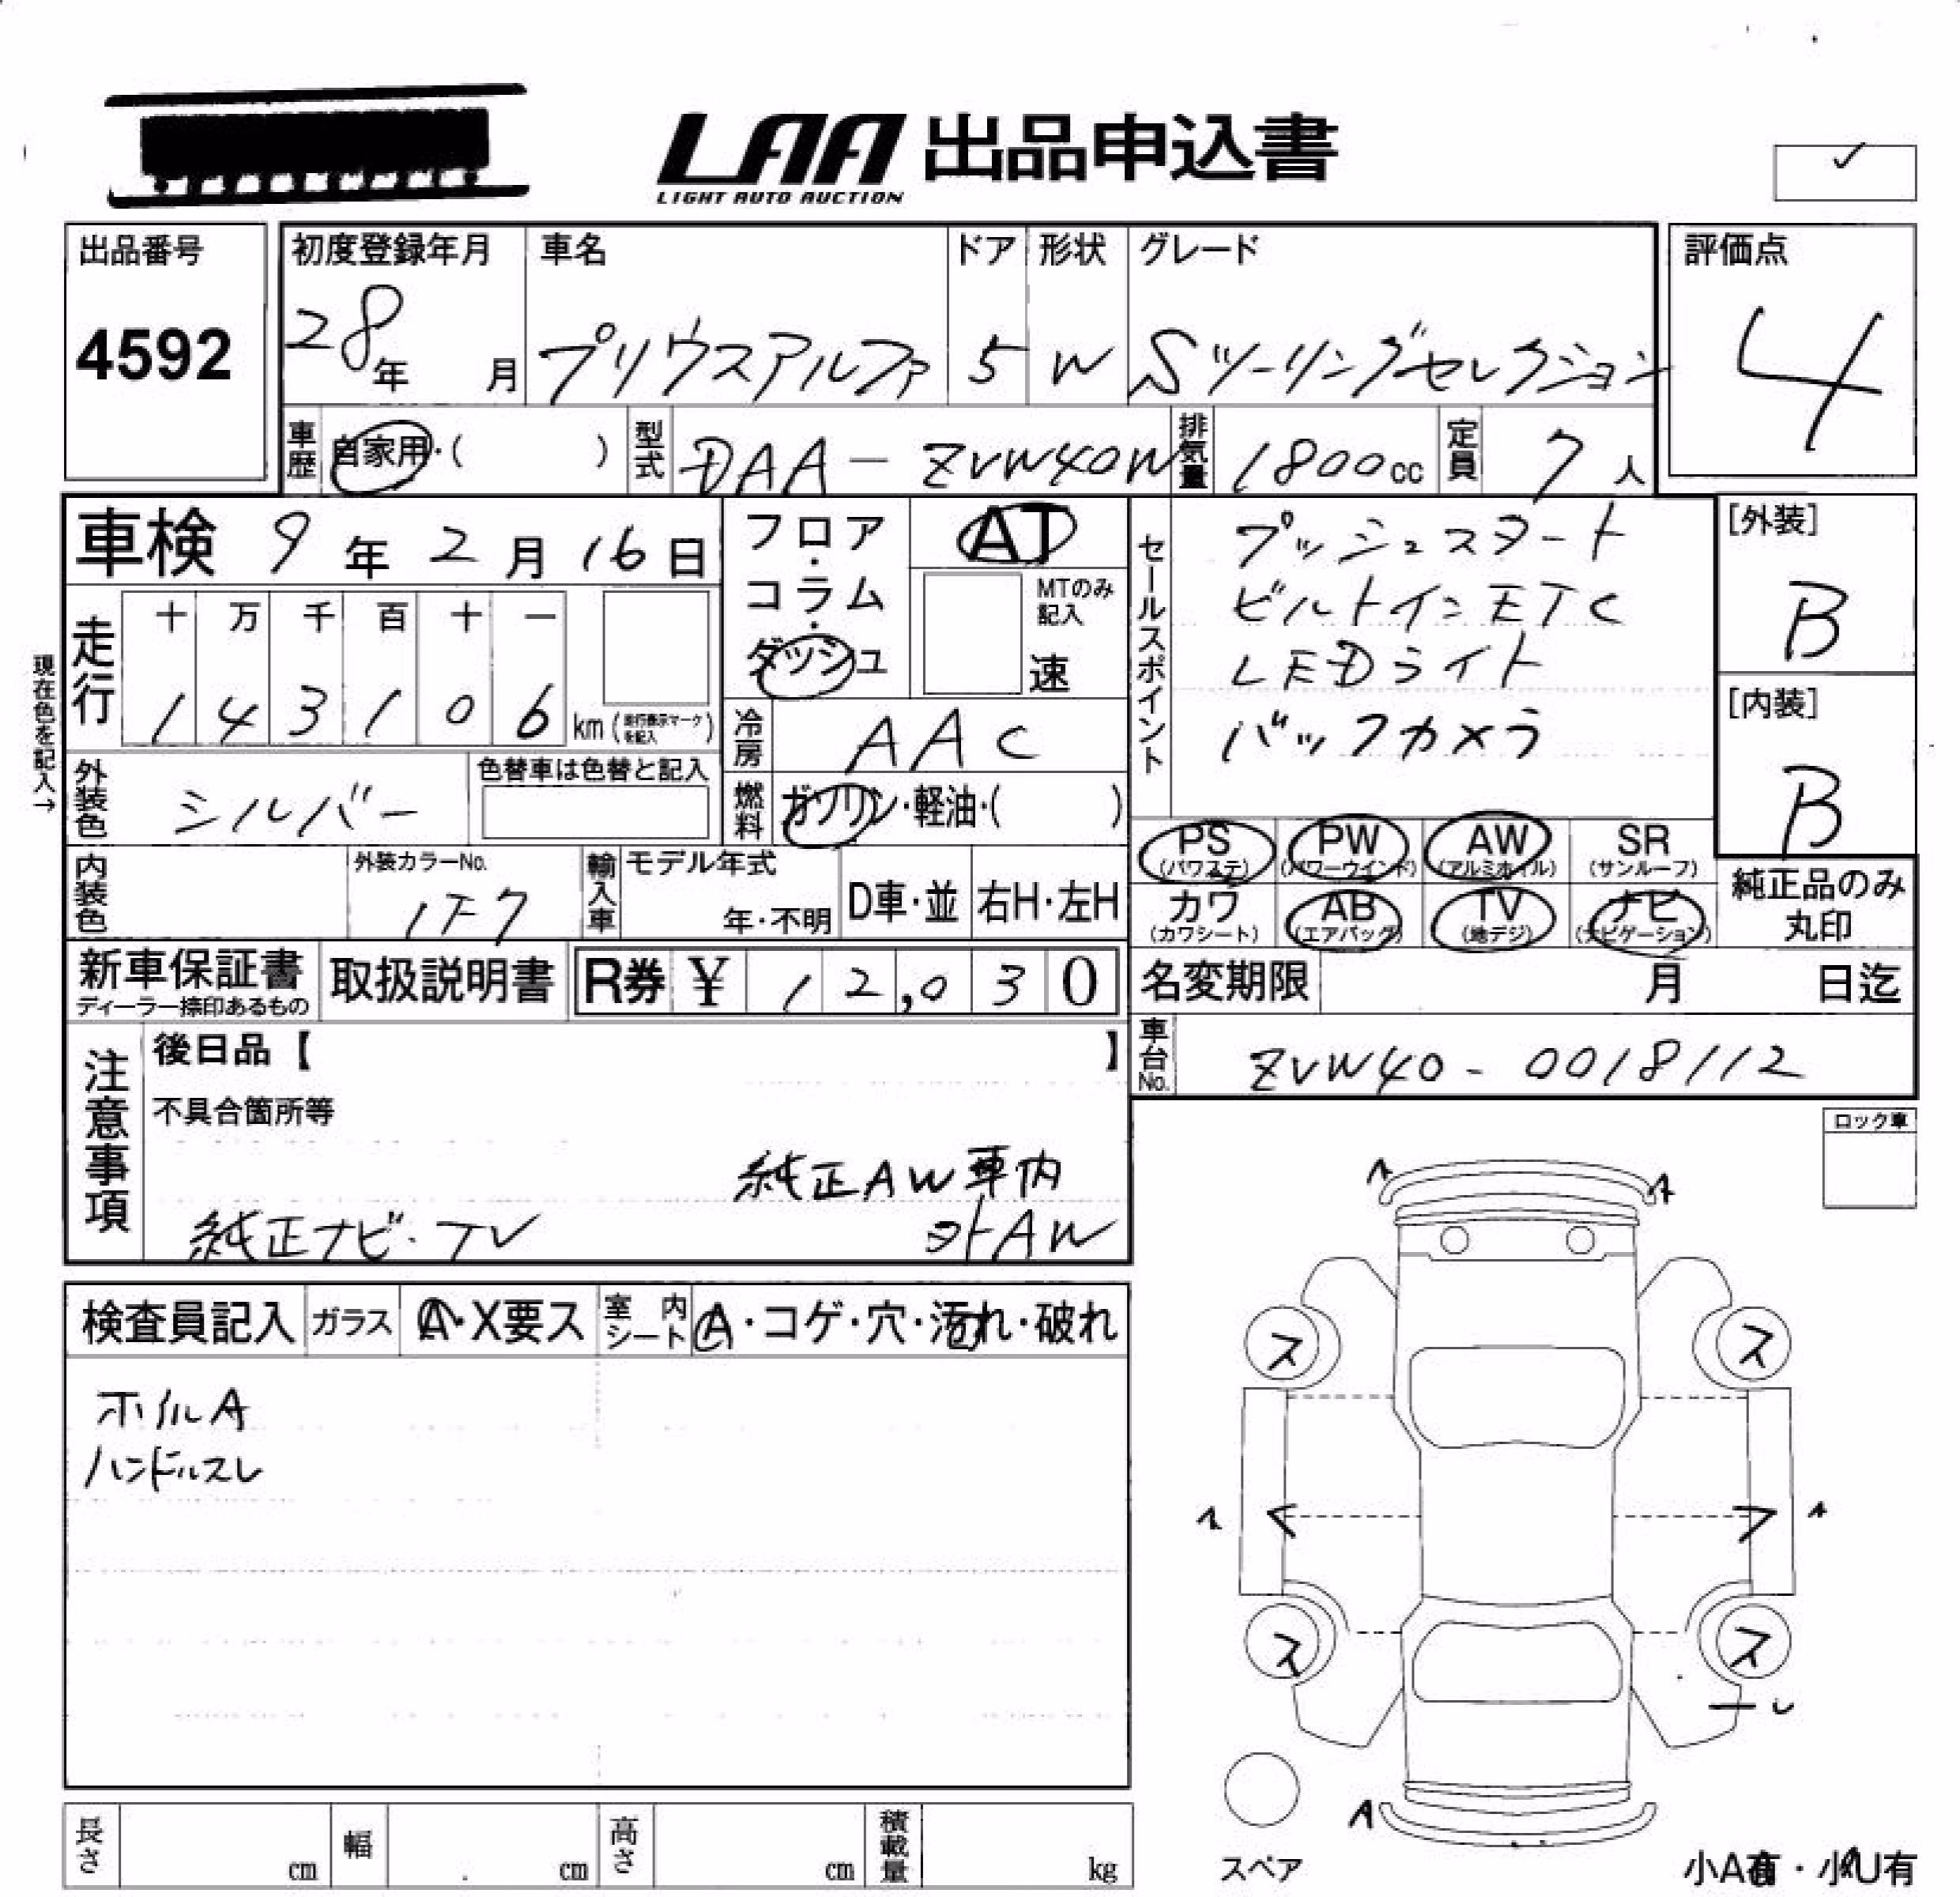 LAA 出品申込書
LIGHT AUTO AUCTION
出品番号
4592
初度登録年月
28年 月
車名
プリウスアルファ
ドア
5
形状
W
グレード
Sツーリングセレクション
評価点
4
車歴 自家用・( )
型式 DAA-ZVW40W
排気量 1800cc
定員 7人
車検 9年2月16日
現在色を記入→
走行
十 万 千 百 十 一
1 4 3 1 0 6 km (走行表示マークを記入)
フロア・コラム・ダッシュ
AT
MTのみ記入
速
冷房 AAC
燃料 ガソリン・軽油・( )
外装色 シルバー
色替車は色替と記入
内装色
外装カラーNo.
1F7
輸入車
モデル年式
年・不明
D車・並
右H・左H
セールスポイント
プッシュスタート
ビルトインETC
LEDライト
バックカメラ
[外装]
B
[内装]
B
PS (パワステ)
PW (パワーウインド)
AW (アルミホイル)
SR (サンルーフ)
カワ (カワシート)
AB (エアバッグ)
TV (地デジ)
ナビ (ナビゲーション)
純正品のみ
丸印
新車保証書
ディーラー捺印あるもの
取扱説明書
R券 ¥ 12,030
名変期限 月 日迄
車台No. ZVW40-0018112
注意事項
後日品【 】
不具合箇所等
純正AW車内
純正ナビ・TV
外AW
ロック車
検査員記入
ガラス A・X要ス
室内シート A・コゲ・穴・汚れ・破れ
ホイルA
ハンドルスレ
A A
ス ス
A A
ス ス
A
スペア
小A有・小U有
長さ cm
幅 cm
高さ cm
積載量 kg